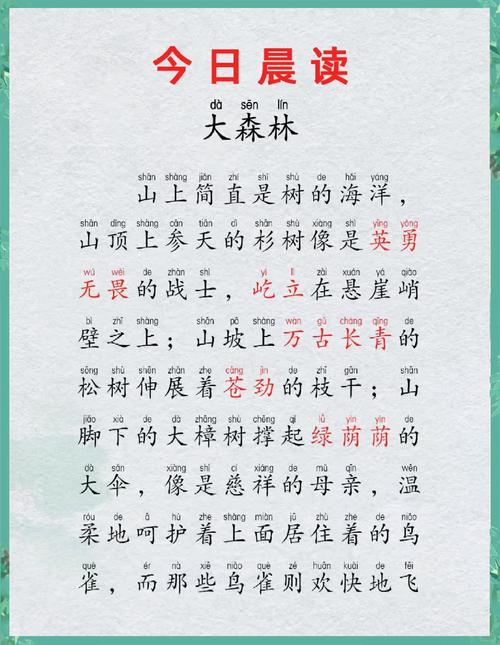 今日晨读
dà sēn lín
大森林
shān shàng jiǎn zhí shì shù de hǎi yáng
山上简直是树的海洋，
shān dǐng shàng cān tiān de shān shù xiàng shì yīng yǒng
山顶上参天的杉树像是英勇
wú wèi de zhàn shì yì lì zài xuán yá qiào
无畏的战士，屹立在悬崖峭
bì zhī shàng shān pō shàng wàn gǔ cháng qīng de
壁之上；山坡上万古长青的
sōng shù shēn zhǎn zhe cāng jìn de zhī gàn shān
松树伸展着苍劲的枝干；山
jiǎo xià de dà zhāng shù chēng qǐ lǜ yīn yīn de
脚下的大樟树撑起绿荫荫的
dà sǎn xiàng shì cí xiáng de mǔ qīn wēn
大伞，像是慈祥的母亲，温
róu de ā hù zhe shàng miàn jū zhù zhe de niǎo
柔地呵护着上面居住着的鸟
què ér nà xiē niǎo què zé huān kuài de fēi
雀，而那些鸟雀则欢快地飞